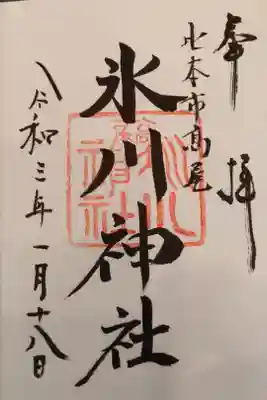 奉拝
北本市高尾
氷川神社
令和三年一月十八日